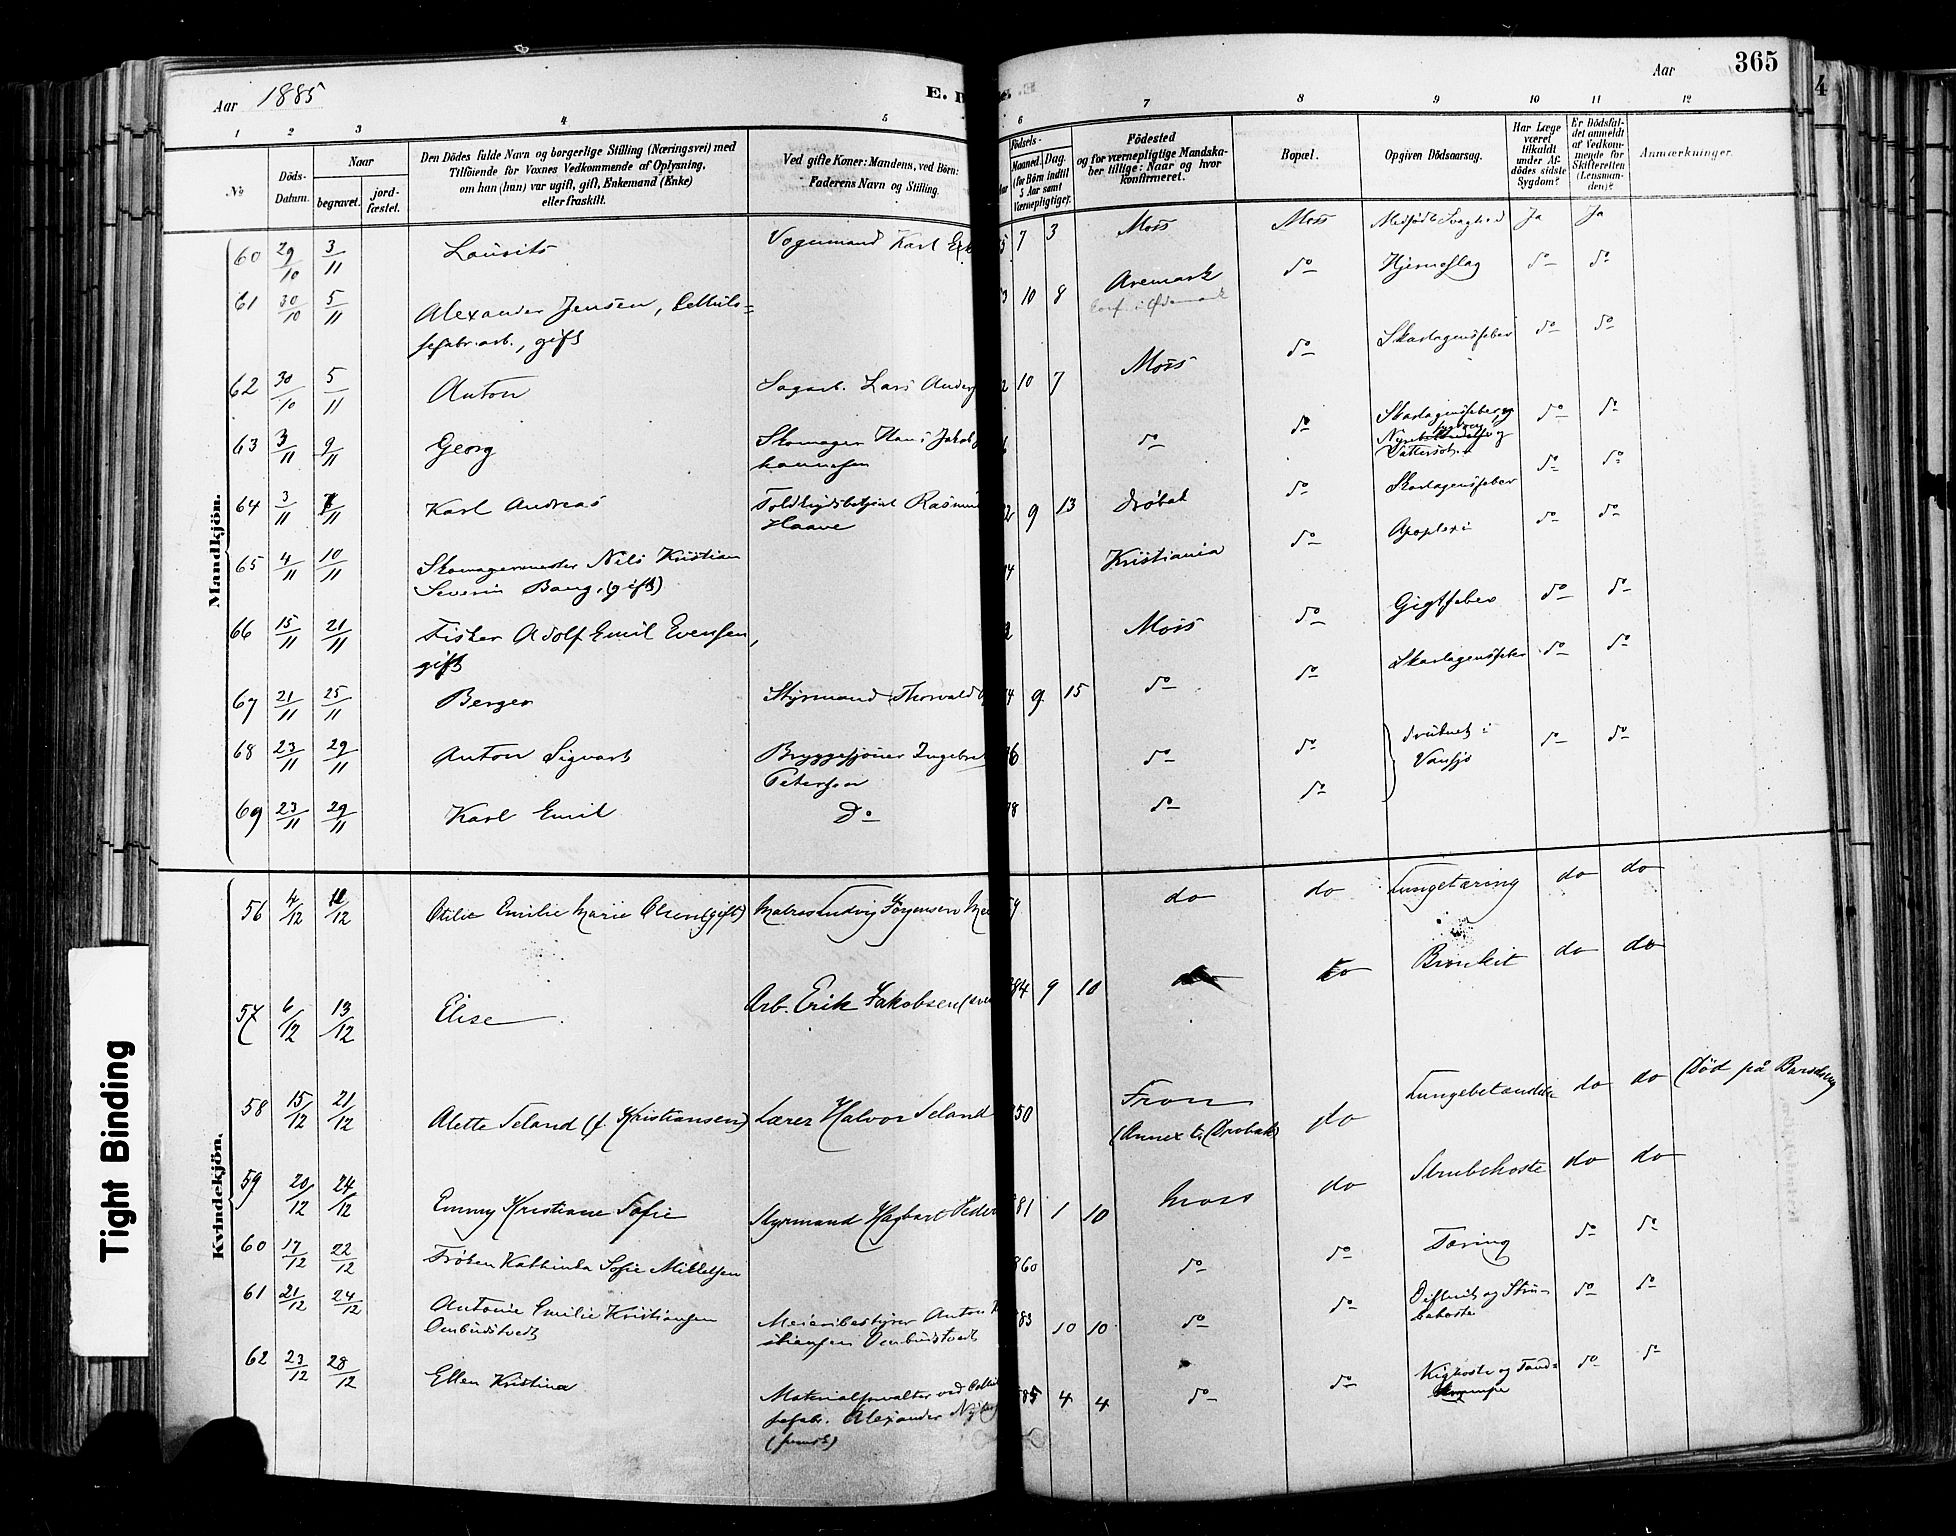 Aar 1885
E. D
Aar
365
4
1 2 3 4 5 6 7 8 9 10 11 12
No
Döds-Datum.
Naar
begravet.
jord-fæstet.
Den Dödes fulde Navn og borgerlige Stilling (Næringsvei) med
Tilföiende for Voxnes Vedkommende af Oplysning,
om han (hun) var ugift, gift, Enkemand (Enke)
eller fraskilt.
Ved gifte Koner: Mandens, ved Börn:
Faderens Navn og Stilling.
Födsels-
Maaned. Dag.
(for Börn indtil
5 Aar samt
Værnepligtige).
Födested
og for værnepligtige Mandska-
ber tillige: Naar og hvor
konfirmeret.
Bopæl.
Opgiven Dödsaarsag.
Har Læge
været
tilkaldt
under Af-
dödes sidste
Sygdom?
Er Dödsfal-
det anmeldt
af Vedkom-
mende for
Skifteretten
(Lensman-
den)?
Anmærkninger.
Mandkjön.
60 29/10 3/11 Lausits Vognmand Karl 5 7 3 Moss Moss Medfødt Svaghed Ja Ja
61 30/10 5/11 Alexander Jensen, Cellulo=
sefabr.arb., gift 3 10 8 Aremark do Hjerneslag do do
62 30/10 5/11 Anton Sagarb. Lars Anders 2 10 7 Moss do Skarlagensfeber do do
63 3/11 9/11 Georg Skomager Hans Jakob
hannesen 6 do do Skarlagensfeber og
Vattersot do do
64 3/11 7/11 Karl Andreas Rasmus
Haave 2 9 13 Drøbak do Skarlagensfeber do do
65 4/11 10/11 Skomagermester Nils Kristian
Severin Bang, (gift) 4 Kristiania do Apoplexi do do
66 15/11 21/11 Fisker Adolf Emil Evensen,
gift 2 Moss do Gigtfeber do do
67 21/11 25/11 Berger Styrmand Thorvald 4 9 15 do do Skarlagensfeber do do
68 23/11 29/11 Anton Sigvart Bryggesjouer Ingebret
Petersen 6 do do Druknet i
Vansjø do do
69 23/11 29/11 Karl Emil Do 8 do do
Kvindekjön.
56 4/12 11/12 Otilie Emilie Marie Olsen (gift) Matros Ludvig Jørgensen 9 do do Lungetæring do do
57 6/12 13/12 Elise Arb. Erik Jakobsen 84 9 10 do do Bronkit do do
58 15/12 21/12 Alette Seland (f. Kristiansen) Lærer Halvor Seland 50 Fron
(Annex t. Drøbak) do Lungebetændelse do do (Død på Barselseng
59 20/12 24/12 Emmy Kristiane Sofie Styrmand Hagbart Peder 81 1 10 Moss do Strubehoste do do
60 17/12 22/12 Frøken Kathinka Sofie Mikkelsen 860 do do Tæring do do
61 21/12 24/12 Antonie Emilie Kristiansen
Ombudstvedt Meieribestyrer Anton
stiansen Ombudstvedt 83 10 10 do do Difterit og Stru-
behoste do do
62 23/12 28/12 Ellen Kristina Materialforvalter ved Cellu
sefabr. Alexander
(svensk) 85 4 4 do do Kighoste og Tand-
krampe do do
Tight Binding